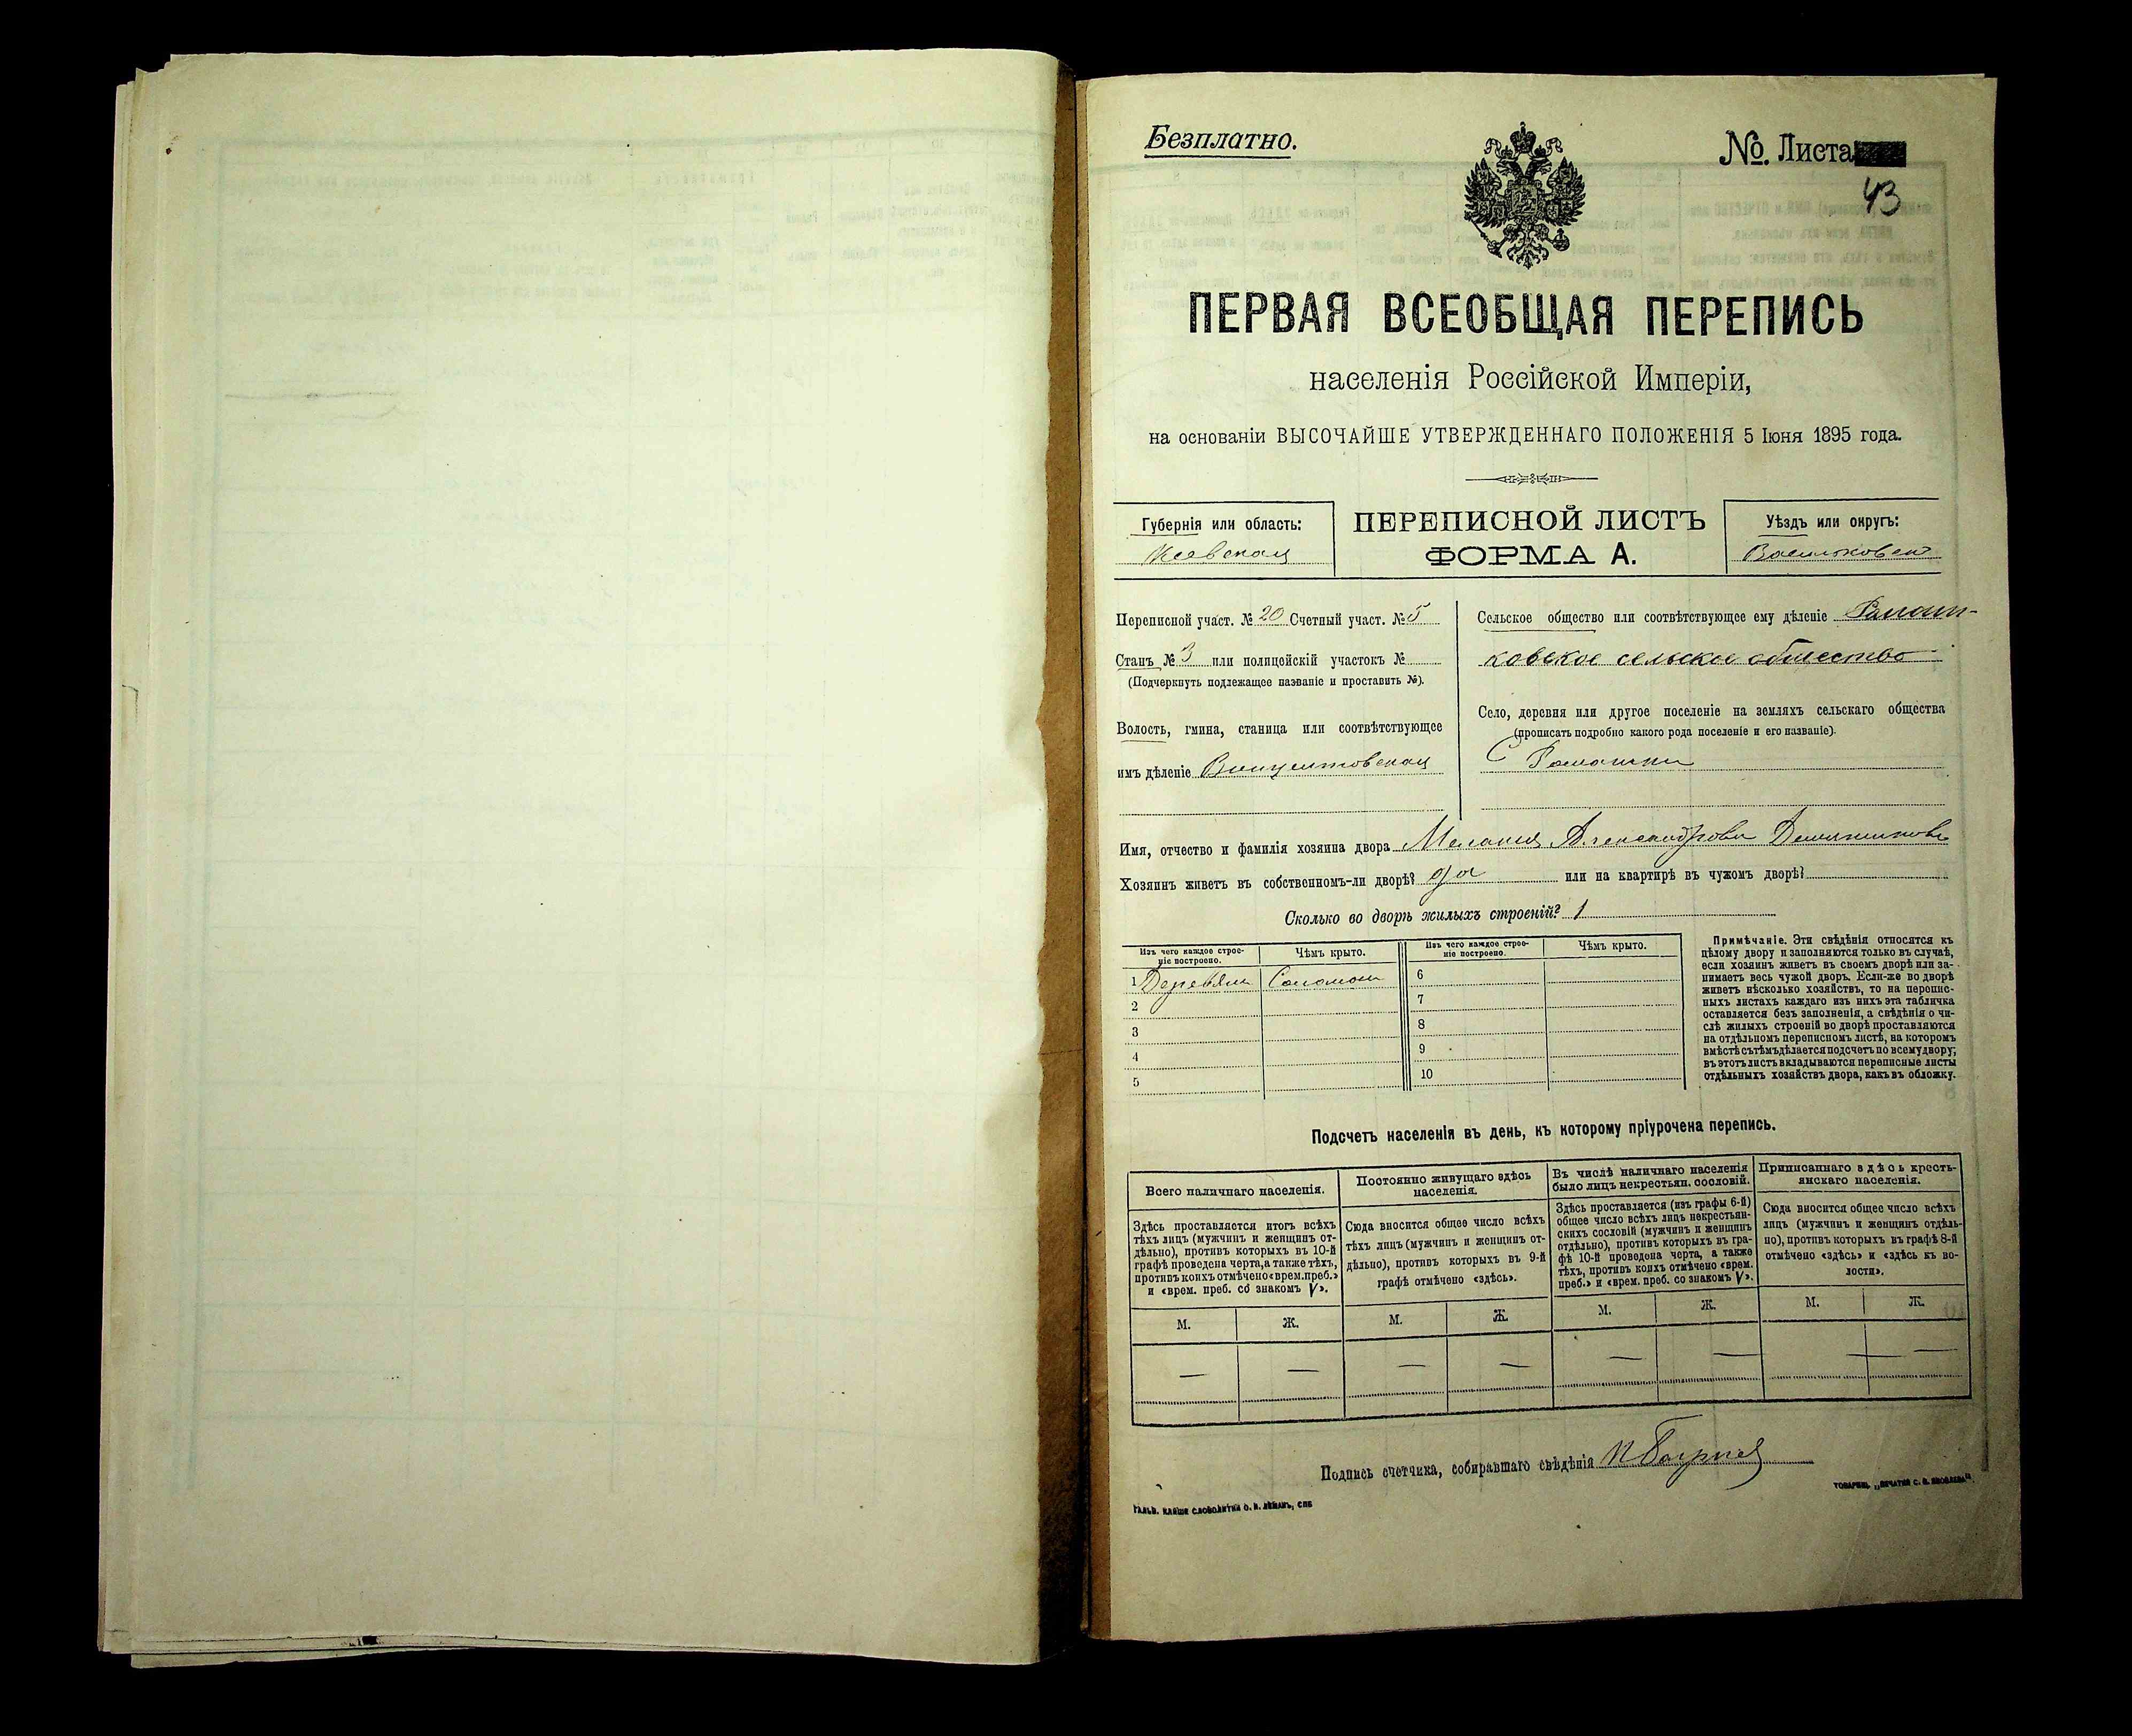 Безплатно.
№. Листа
43
ПЕРВАЯ ВСЕОБЩАЯ ПЕРЕПИСЬ
населенія Россійской Имперіи,
на основаніи ВЫСОЧАЙШЕ УТВЕРЖДЕННАГО ПОЛОЖЕНІЯ 5 Іюня 1895 года.
Губернія или область:
Кіевская
ПЕРЕПИСНОЙ ЛИСТЪ
ФОРМА А.
Уѣздъ или округъ:
Васильковск
Переписной участ. № 20 Счетный участ. № 5
Станъ № 3 или полицейскій участокъ №
(Подчеркнуть подлежащее названіе и проставить №).
Волость, гмина, станица или соотвѣтствующее
имъ дѣленіе Винцентовская
Сельское общество или соотвѣтствующее ему дѣленіе Ромаш-
ковское сельское общество
Село, деревня или другое поселеніе на земляхъ сельскаго общества
(прописать подробно какого рода поселеніе и его названіе).
С Ромашки
Имя, отчество и фамилія хозяина двора Мелания Александрова
Хозяинъ живетъ въ собственномъ-ли дворѣ? да или на квартирѣ въ чужомъ дворѣ?
Сколько во дворѣ жилыхъ строеній? 1
Изъ чего каждое строе-
ніе построено.
Чѣмъ крыто.
Изъ чего каждое строе-
ніе построено.
Чѣмъ крыто.
1 Деревян Соломои 6
2 7
3 8
4 9
5 10
Примѣчаніе. Эти свѣдѣнія относятся къ
цѣлому двору и заполняются только въ случаѣ,
если хозяинъ живетъ въ своемъ дворѣ или за-
нимаетъ весь чужой дворъ. Если-же во дворѣ
живетъ нѣсколько хозяйствъ, то на перепис-
ныхъ листахъ каждаго изъ нихъ эта табличка
оставляется безъ заполненія, а свѣдѣнія о чи-
слѣ жилыхъ строеній во дворѣ проставляются
на отдѣльномъ переписномъ листѣ, на которомъ
вмѣстѣ съ тѣмъ дѣлается подсчетъ по всему двору;
въ этотъ листъ вкладываются переписные листы
отдѣльныхъ хозяйствъ двора, какъ въ обложку.
Подсчетъ населенія въ день, къ которому пріурочена перепись.
Всего наличнаго населенія.
Здѣсь проставляется итогъ всѣхъ
тѣхъ лицъ (мужчинъ и женщинъ от-
дѣльно), противъ которыхъ въ 10-й
графѣ проведена черта, а также тѣхъ,
противъ коихъ отмѣчено «врем. преб.»
и «врем. преб. со знакомъ V».
Постоянно живущаго здѣсь
населенія.
Сюда вносится общее число всѣхъ
тѣхъ лицъ (мужчинъ и женщинъ от-
дѣльно), противъ которыхъ въ 9-й
графѣ отмѣчено «здѣсь».
Въ числѣ наличнаго населенія
было лицъ некрестьян. сословій.
Здѣсь проставляется (изъ графы 6-й)
общее число всѣхъ лицъ некрестьян-
скихъ сословій (мужчинъ и женщинъ
отдѣльно), противъ которыхъ въ гра-
фѣ 10-й проведена черта, а также
тѣхъ, противъ коихъ отмѣчено «врем.
преб.» и «врем. преб. со знакомъ V».
Приписаннаго здѣсь кресть-
янскаго населенія.
Сюда вносится общее число всѣхъ
лицъ (мужчинъ и женщинъ отдѣль-
но), противъ которыхъ въ графѣ 8-й
отмѣчено «здѣсь» и «здѣсь къ во-
лости».
М. Ж. М. Ж. М. Ж. М. Ж.
— — — — — — — —
Подпись счетчика, собиравшаго свѣдѣнія